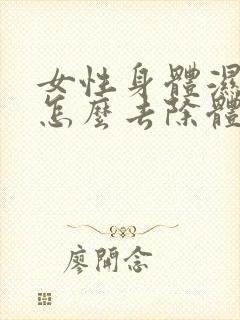 女性身體濕
怎麼去除體
廖開念